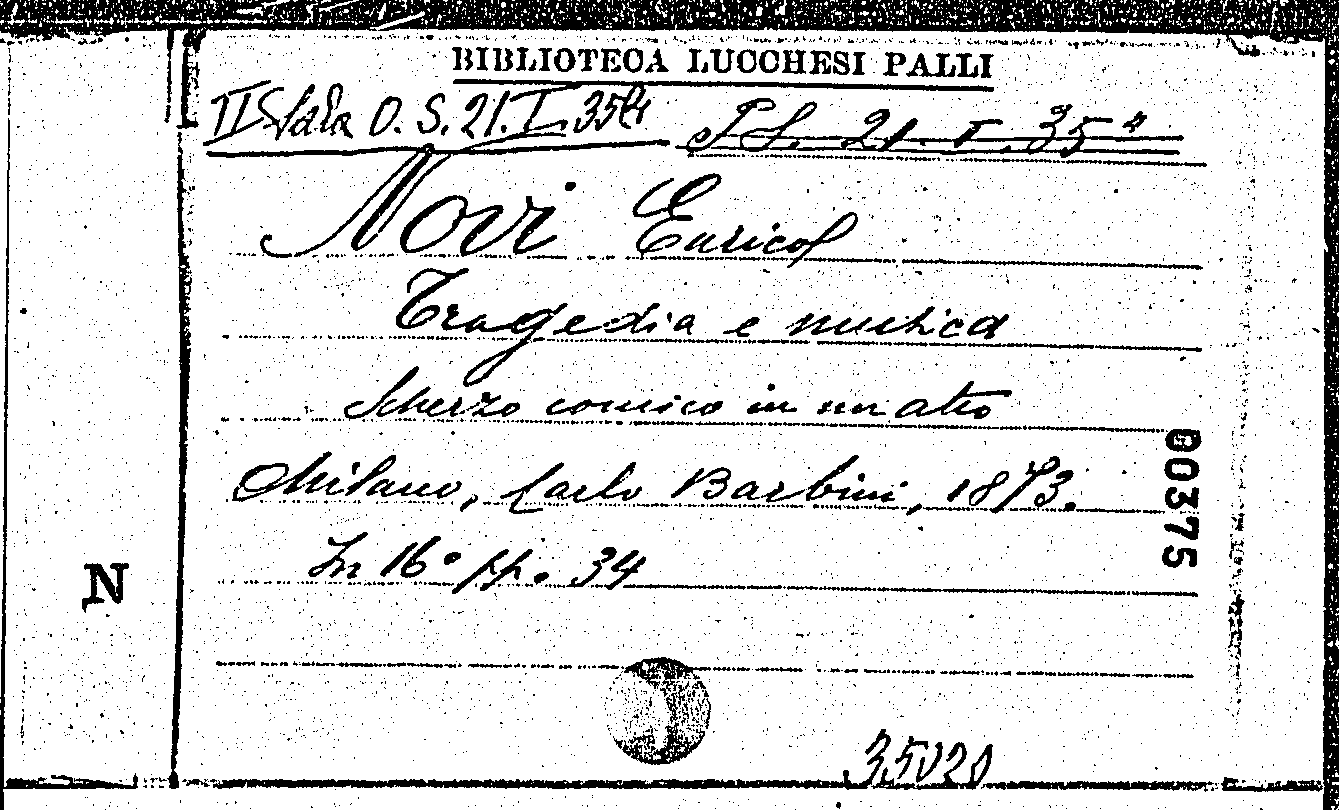 BIBLIOTECA LUCCHESI PALLI
II Sala O. S. 21. I. 35
P S. 21. I. 35
Novi Enrico
Tragedia e musica
Scherzo comico in un atto
Milano, Carlo Barbini, 1873.
In 16° pp. 34
00375
N
35020